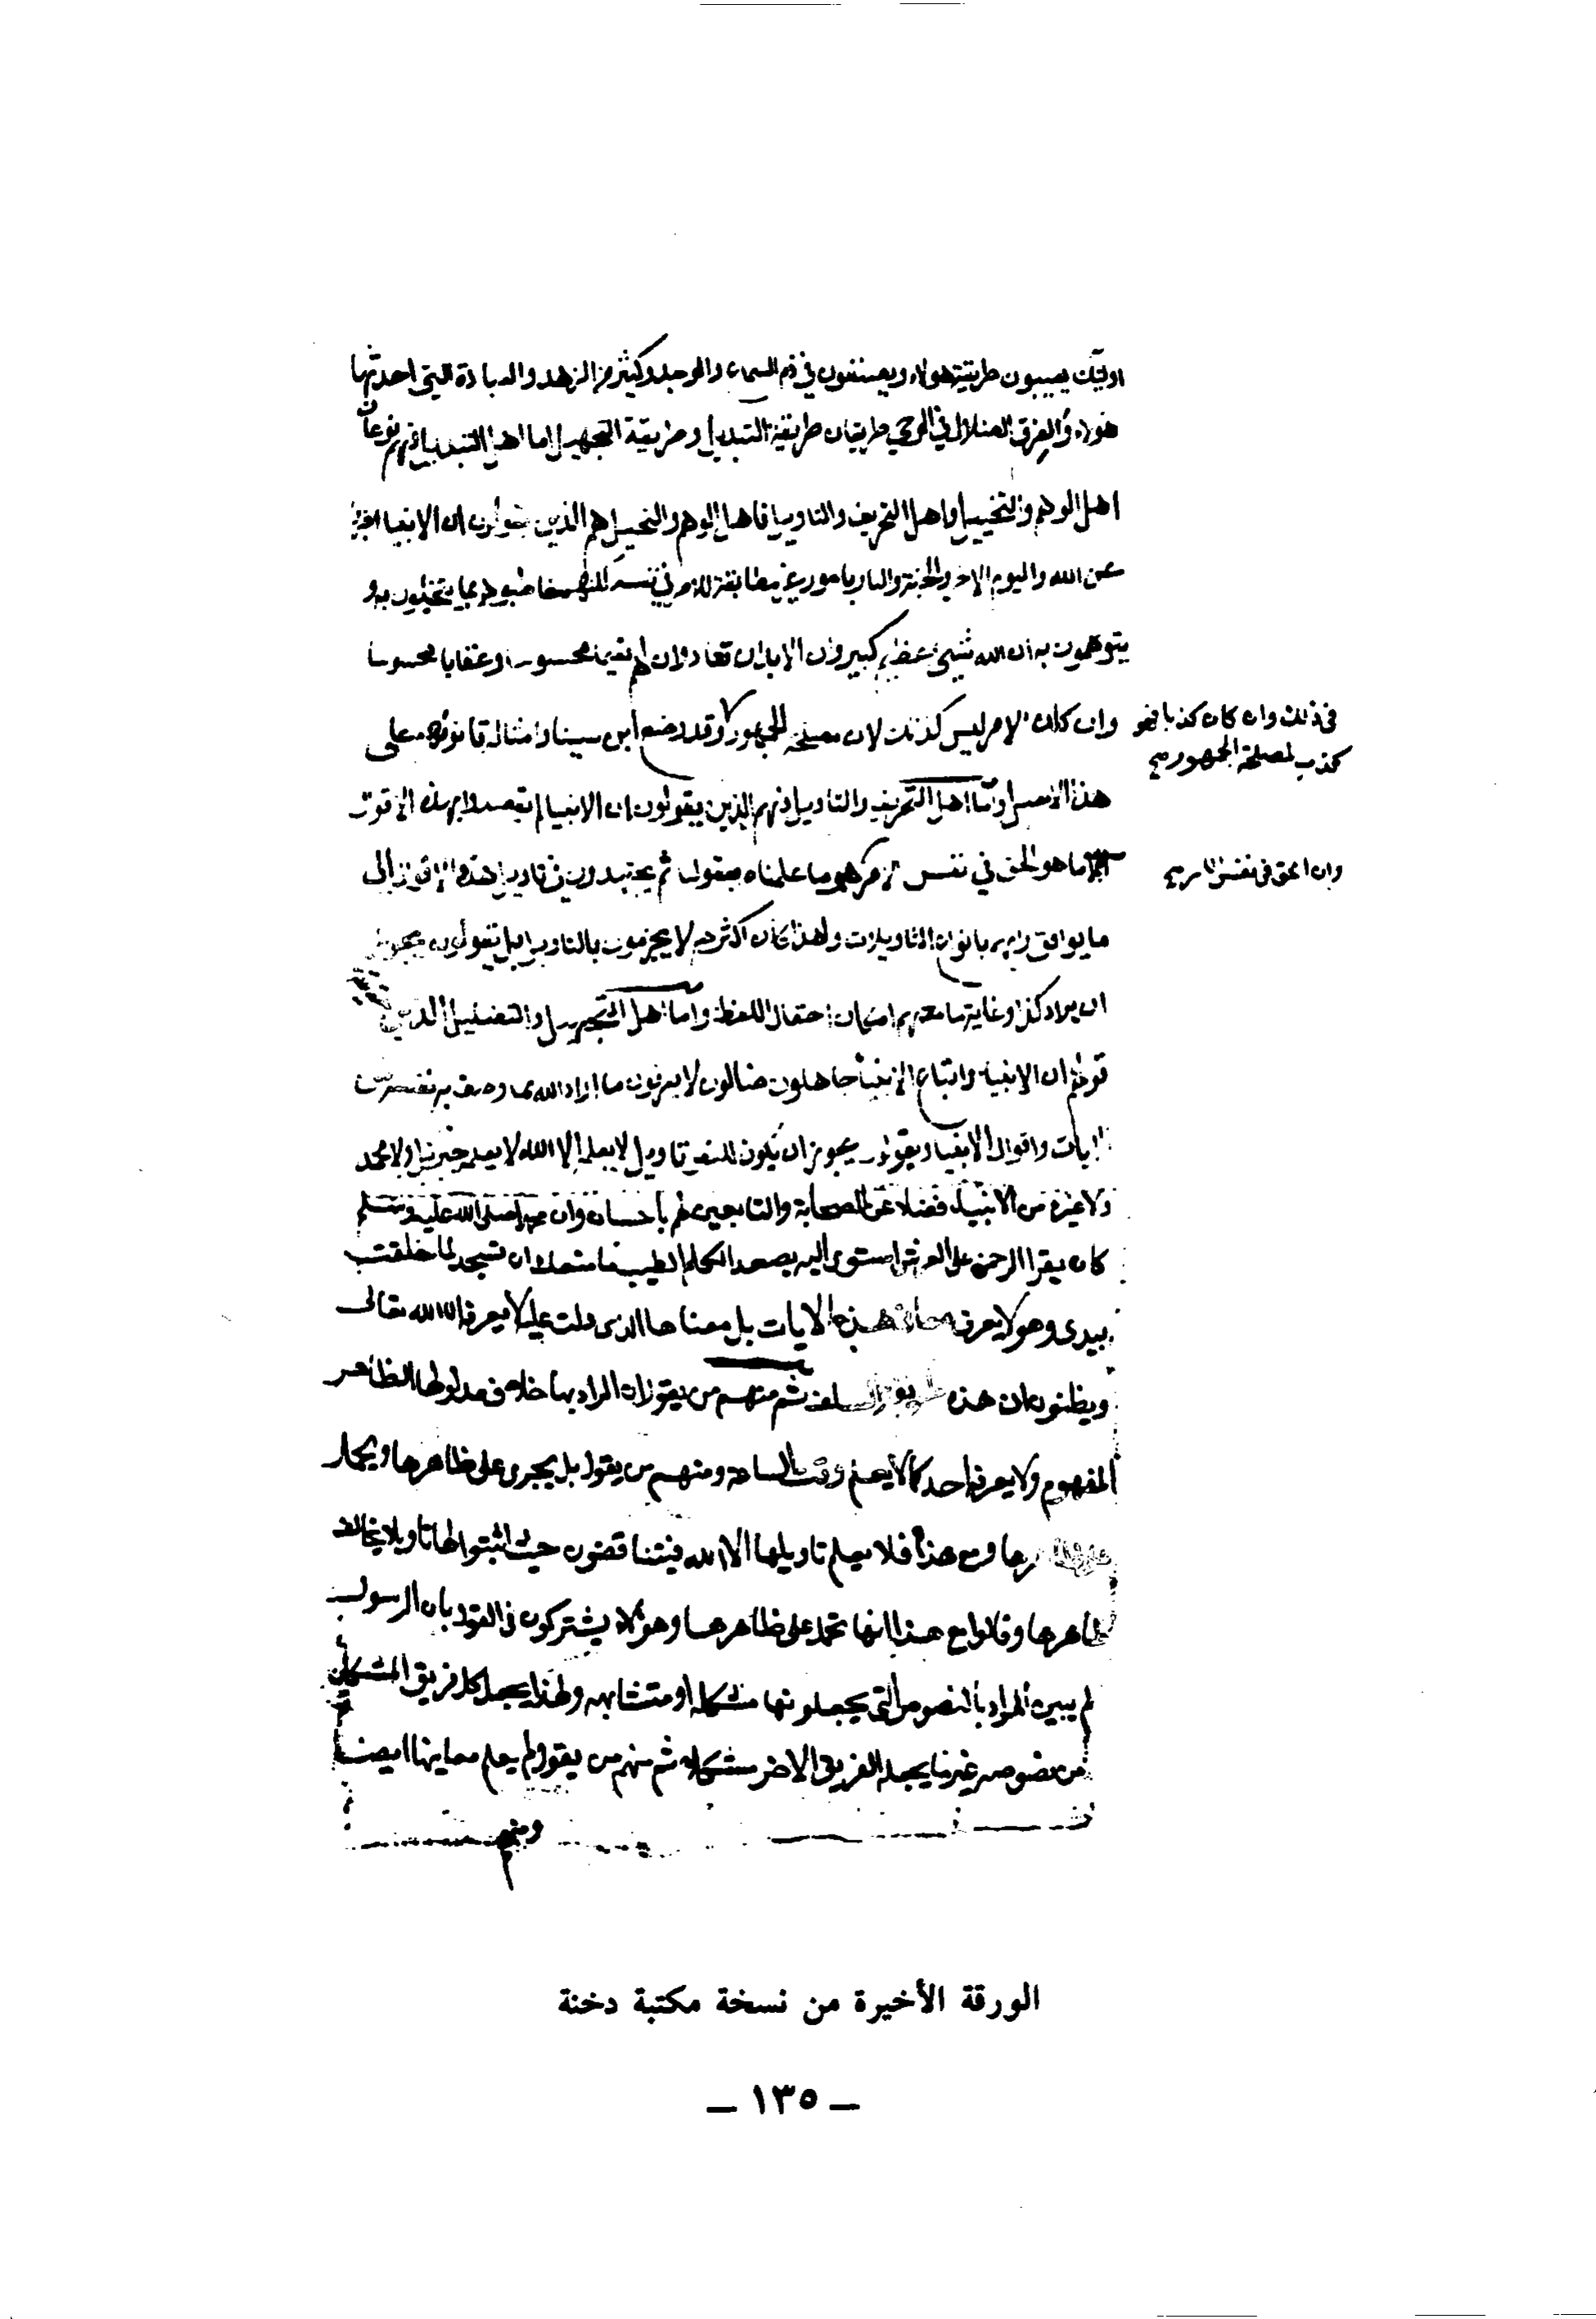 اوليك يعيبون طريقة هولاء ويصنفون في ذم السماع والوجد وكثير من الزهد والعبادة التي احدثها
هولاء والفرق الضلال في الوحي طريقان طريقة التبديل وطريقة التجهيل اما اهل التبديل فهم نوعان
اهل الوهم والتخييل واهل التحريف والتاويل فاهل الوهم والتخييل هم الذين يقولون ان الانبيا
عن الله واليوم الاخر والجنة والنار بامور غير مطابقة للامر في نفسه لكنهم خاطبوهم بما يتخيلون به و
يتوهمون به ان الله شيئ عظيم كبير وان الابدان تعاد وان لهم نعيما محسوسا وعقابا محسوسا
وان كان الامر ليس كذلك لان مصلحة الجمهور وقد وضع ابن سينا وامثاله قانونهم على
في ذلك وان كان كذبا فهو
كذب لمصلحة الجمهور صح
هذا الاصل واما اهل التحريف والتاويل فهم الذين يقولون ان الانبيا لم يقصدوا بهذه الاقوال
ما هو الحق في نفس الامر هو ما علمناه بعقولنا ثم يجتهدون في تاويل هذه الاقوال الى
وان الحق في نفس الامر صح
ما يوافق رايهم بانواع التاويلات ولهذا كان اكثرهم لا يجزمون بالتاويل بل يقولون يجوز
ان يراد كذا وغاية ما معهم امكان احتمال اللفظ واما اهل التجهيل والتضليل الذين
قولهم ان الانبياء واتباع الانبيا جاهلون ضالون لا يعرفون ما اراد الله بما وصف به نفسه من
الايات واقوال الانبيا ويقولون يجوز ان يكون للنص تاويل لا يعلمه الا الله لا يعلمه جبريل ولا محمد
ولا غيره من الانبياء فضلا عن الصحابة والتابعين لهم باحسان وان محمدا صلى الله عليه وسلم
كان يقرا الرحمن على العرش استوى اليه يصعد الكلم الطيب ما منعك ان تسجد لما خلقت
بيدي وهو لا يعرف معاني هذه الايات بل معناها الذي دلت عليه لا يعرفه الا الله تعالى
ويظنون ان هذه طريقة السلف ثم منهم من يقول ان المراد بها خلاف مدلولها الظاهر
المفهوم ولا يعرفه احد كما لا يعلم وقت الساعة ومنهم من يقول بل يجرى على ظاهرها ويحمل
على ظاهرها ومع هذا فلا يعلم تاويلها الا الله فيتناقضون حيث اثبتوا لها تاويلا يخالف
ظاهرها وقالوا مع هذا انها تحمل على ظاهرها وهولاء يشتركون في القول بان الرسول
لم يبين المراد بالنصوص التي يجعلونها مشكلة او متشابهه ولهذا يجعل كل فريق المشكل
من نصوصه غير ما يجعله الفريق الاخر مشكلا ثم منهم من يقول لم يعلم معاينها ايضا
ومنهم
الورقة الأخيرة من نسخة مكتبة دخنة
— ١٣٥ —